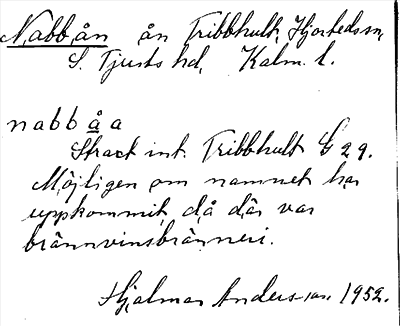 Nabbån ån Tribbhult, Hjortedssn,
S. Tjusts hd, Kalm. l.
nabbåa
Strax int. Tribbhult
Möjligen om namnet har
uppkommit, då där var
brännvinsbränneri.
Hjalmar Andersson 1952.